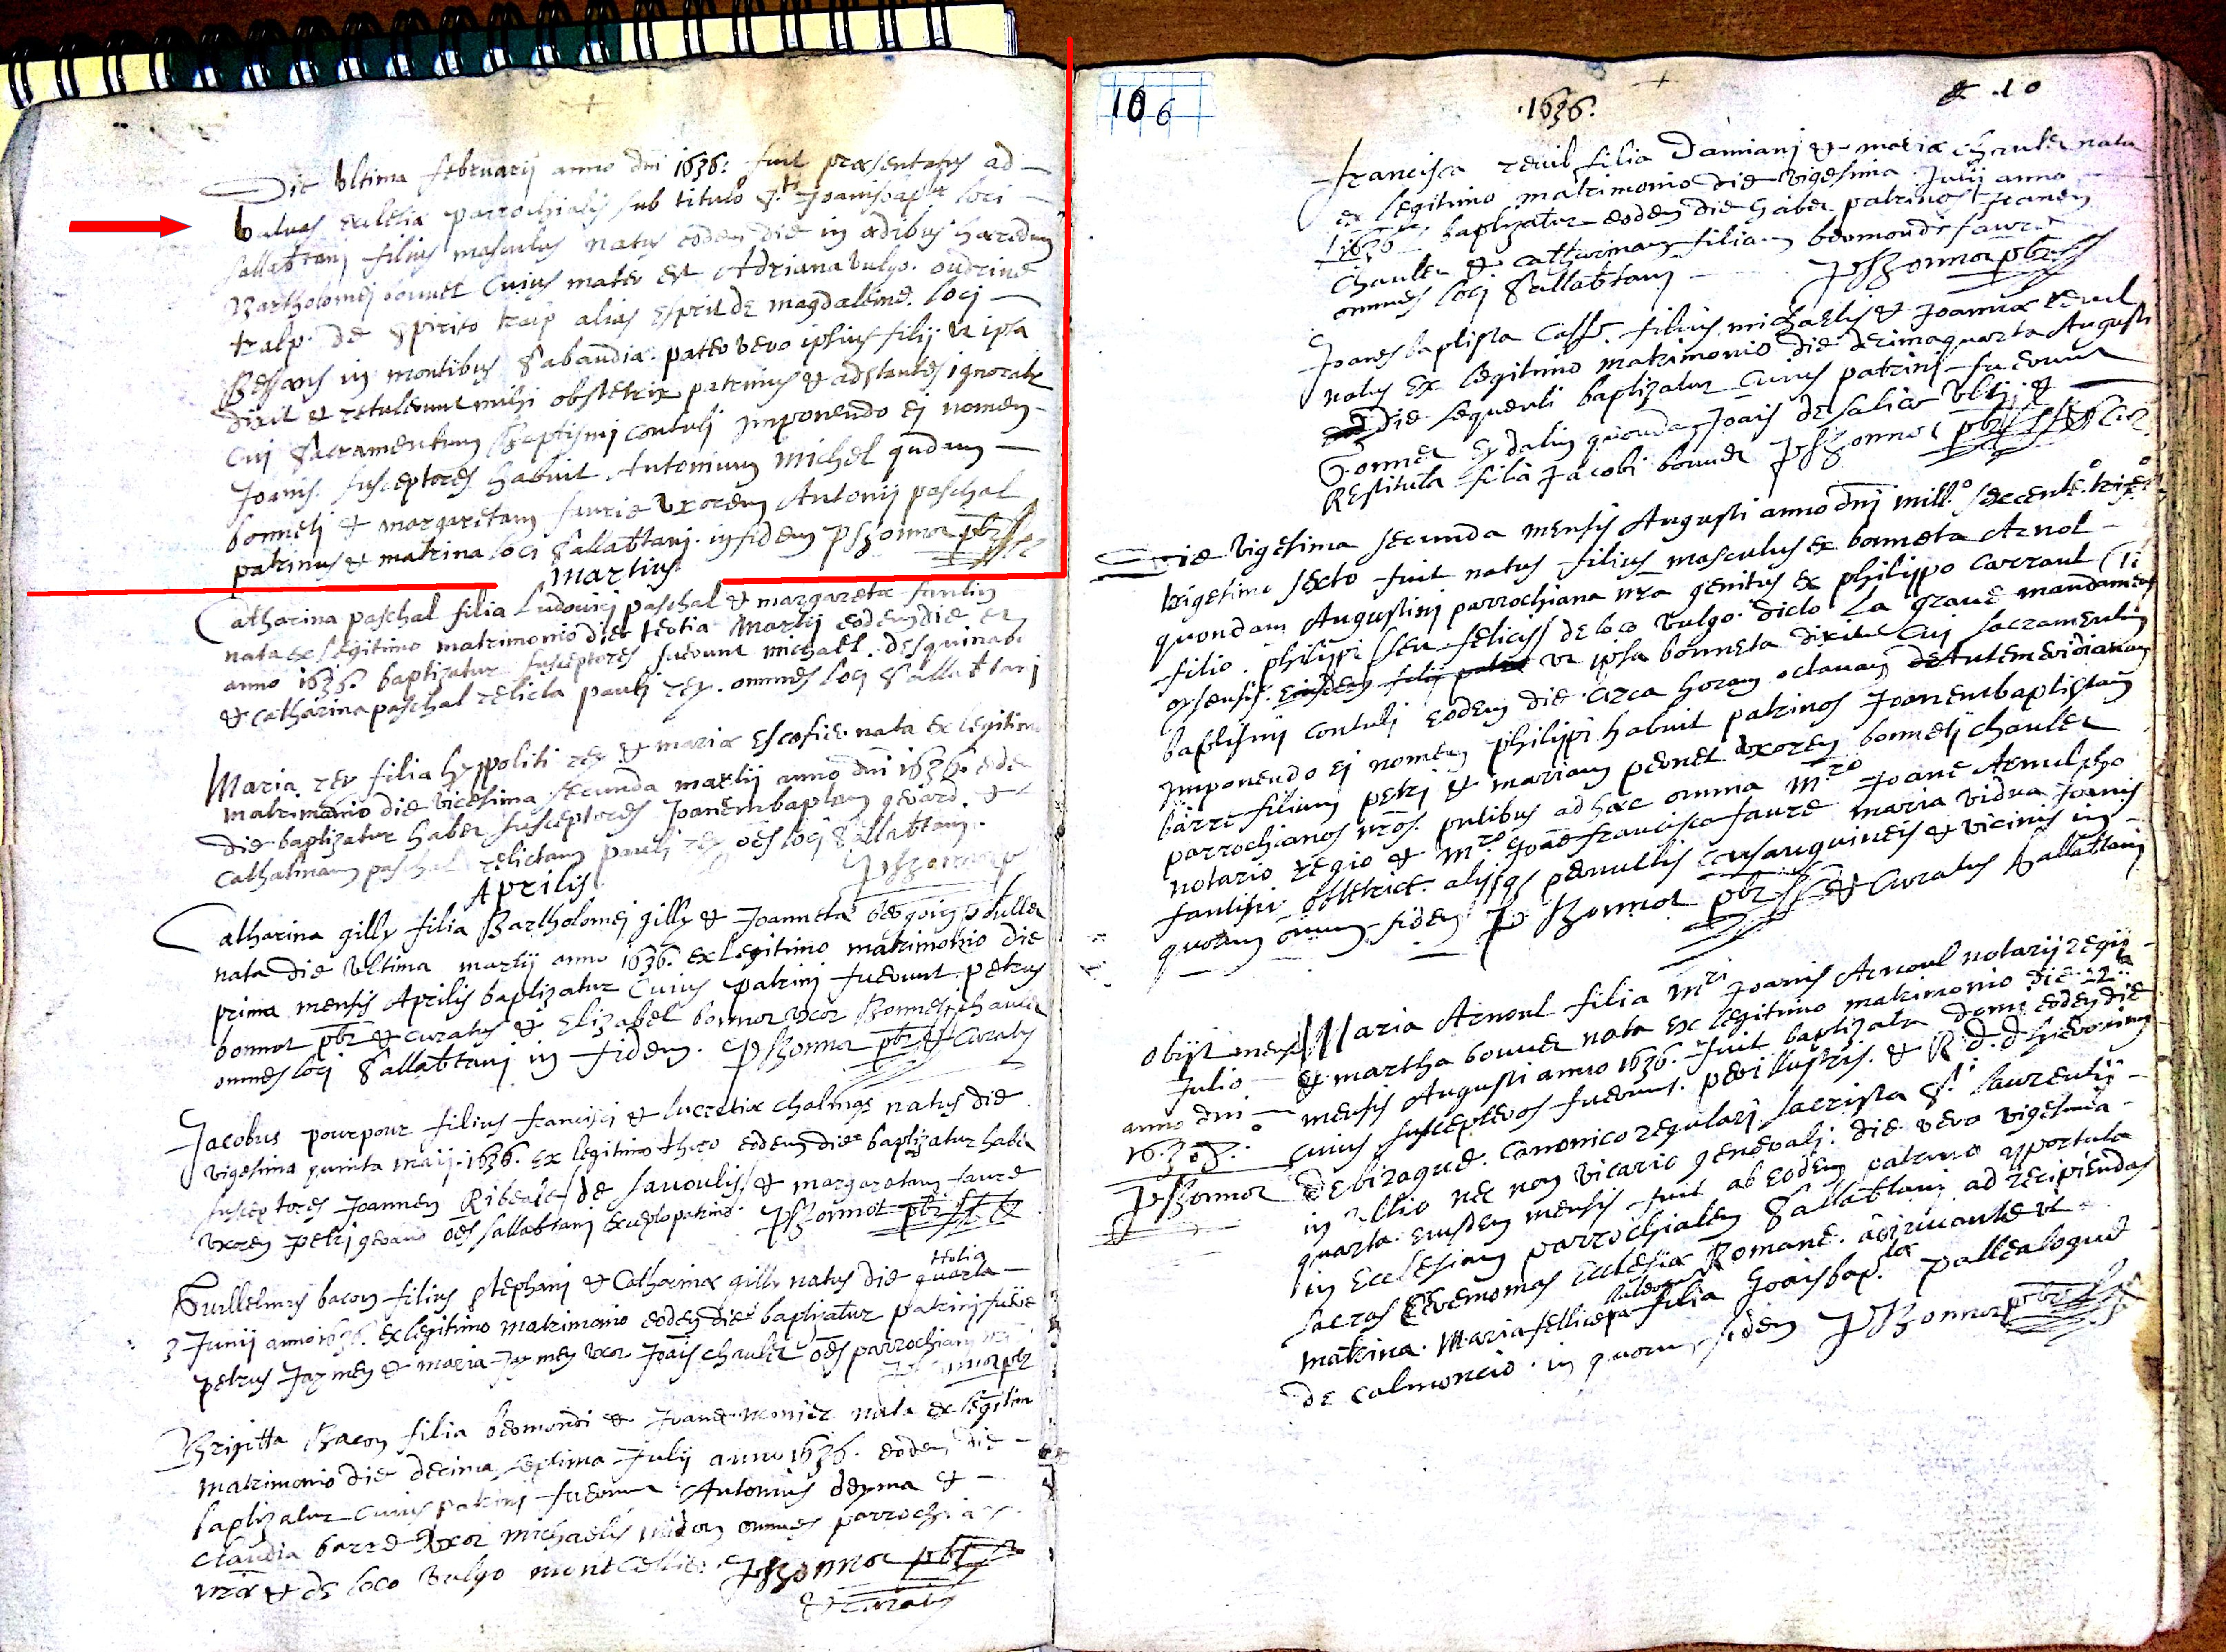 Die Ultima februarij anno dni 1636: fuit præsentatus ad
Valvas ecclesiæ parrochialis sub titulo S.ti Joanisbap.tæ loci
Sallabtani filius masculus natus eodem die in ædibus hæredum
Bartholomei bonnet Cuius mater est Adriana vulgo. oudrine
tralp. de Spirito traip alias Esprit de magdaleine. loci
Bessans in montibus Sabaudiæ. pater vero ipsius filij ut ipsa
dixit et retulerunt mihi obstetrix patrinus & adstantes ignoratr
Cui Sacramentum Baptismi contuli Imponendo ei nomen
Joanis. susceptores habuit Antonium Michel qndam
bonneti & margaretam faurie uxorem Antonij paschal
patrinus & matrina loci Sallabtani. in fidem P Bonnot pbr
Martius
Catharina paschal filia Ludovici paschal & margaretæ fantin
nata ex legitimo matrimonio die tertia Martij eodem die et
anno 1636. baptizatur susceptores fuerunt michael. desquinabo
& catharina paschal relicta pauli rey. omnes loci Sallabtani
Maria rey filia hyppoliti rey & mariæ Escofier nata ex legitimo
matrimonio die vicesima secunda martij anno dni 1636. eode
die baptizatur habet susceptores Joanembaptam gerard. &
Catharinam paschal relictam pauli rey oes loci Sallabtani.
P Bonnot p
Aprilis
Catharina gilly filia Bartholomei gilly & Joannetæ
nata die Ultima martij anno 1636. ex legitimo matrimonio die
prima mensis Aprilis baptizatur Cuius patrini fuerunt petrus
bonnot pbr & curatus & Elizabet bonnot uxor Bonneti chaulet
omnes loci Sallabtani in fidem. P Bonnot pbr & Curatus
Jacobus pourpour filius francisci & lucretiæ chalmas natus die
vigesima quinta maij. 1636. ex legitimo thoro eodem die baptizatur habet
susceptores Joannem Ribeale de savoulis & margaretam faure
uxorem petri gerard oes sallabtani excepto patrino. P Bonnot pbr
Holia
Guillelmus bacon filius stephani & Catharinæ gilly natus die quarta
3 Junij anno 1636. ex legitimo matrimonio eodem die baptizatur patrini fuere
petrus Jaymen & maria Jaymen uxor Joais chaulet oes parrochiani
Brigitta Bacon filia bermondi & Joanæ monier nata ex legitim
matrimonio die decima septima Julij anno 1636. eodem die
baptizatur cuius patrini fuerunt Antonius deyma &
Claudia barre uxor michaelis omnes parrochiæ
nræ & de loco vulgo montcellier P Bonnot pbr
& curatus
106
1636.
& .10
francisca revil filia Damiani & mariæ chaulet nata
ex legitimo matrimonio die vigesima Julij anno
1636. baptizatur eodem die habet patrinos Joanem
Chaulet & catharinam filiam bermondi faure
omnes loci Sallabtani
P Bonnot pbr
Joanes baptista Caffe. filius michaelis & Joannæ revil
natus ex legitimo matrimonio die decimaquarta Augusti
die sequenti baptizatur cuius patrini fuerunt
quondam Joais de salice ultij &
Restituta filia Jacobi bonnet P Bonnot pbr & Cur
Die Vigesima secunda mensis Augusti anno dni mill.o sexcente.o trige.o
trigesimo sexto fuit natus filius masculus ex bonneta Arnol
quondam Augustini parrochiana nra genitus ex philippo Carraul
filio. philippi seu felicis de loco vulgo dicto La grave mandamenti
oysensis. ut ipsa bonneta dixit Cui sacramentum
baptismi contuli eodem die circa horam octavam Antemeridianam
Imponendo ei nomen philippi habuit patrinos Joanembaptistam
barre filium petri & mariam pernet uxorem bonneti chaulet
parrochianos nros. pntibus ad hæc omnia M.ro Joane Arnulpho
notario regio & M.ro Joanefrancisco faure maria vidua Joanis
fantini obstetrice. alijsqs permultis consanguineis & vicinis in
quorum omnium fidem P Bonnot pbr & Curatus Sallabtani
obijt mense
Julio
anno dni
1637.
P Bonnot
Maria Arnoul filia M.ri Joanis Arnoul notarij regij
& martha bonnet nata ex legitimo matrimonio die 12.ta
mensis Augusti anno 1636. fuit baptizata domi eodem die
cuius susceptores fuerunt. perillustris. & R.d. d. hieronimus
de birague. Canonico regulari sacrista S.ti laurentij
in Ultio nec non Vicario generali: die vero vigesima
quarta eiusdem mensis fuit ab eodem patrino apportata
in Ecclesiam parrochialem Sallabtani ad recipiendas
sacras Ceremonias Ecclesiæ Romane.
matrina. Maria fellice filia Joaisbap.tæ palleologue
de calmoncio. in quorum fidem P Bonnot pbr